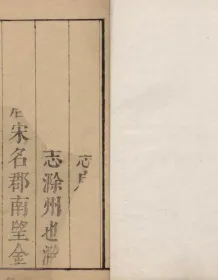 志
志滁州也滁
宋名郡南望金